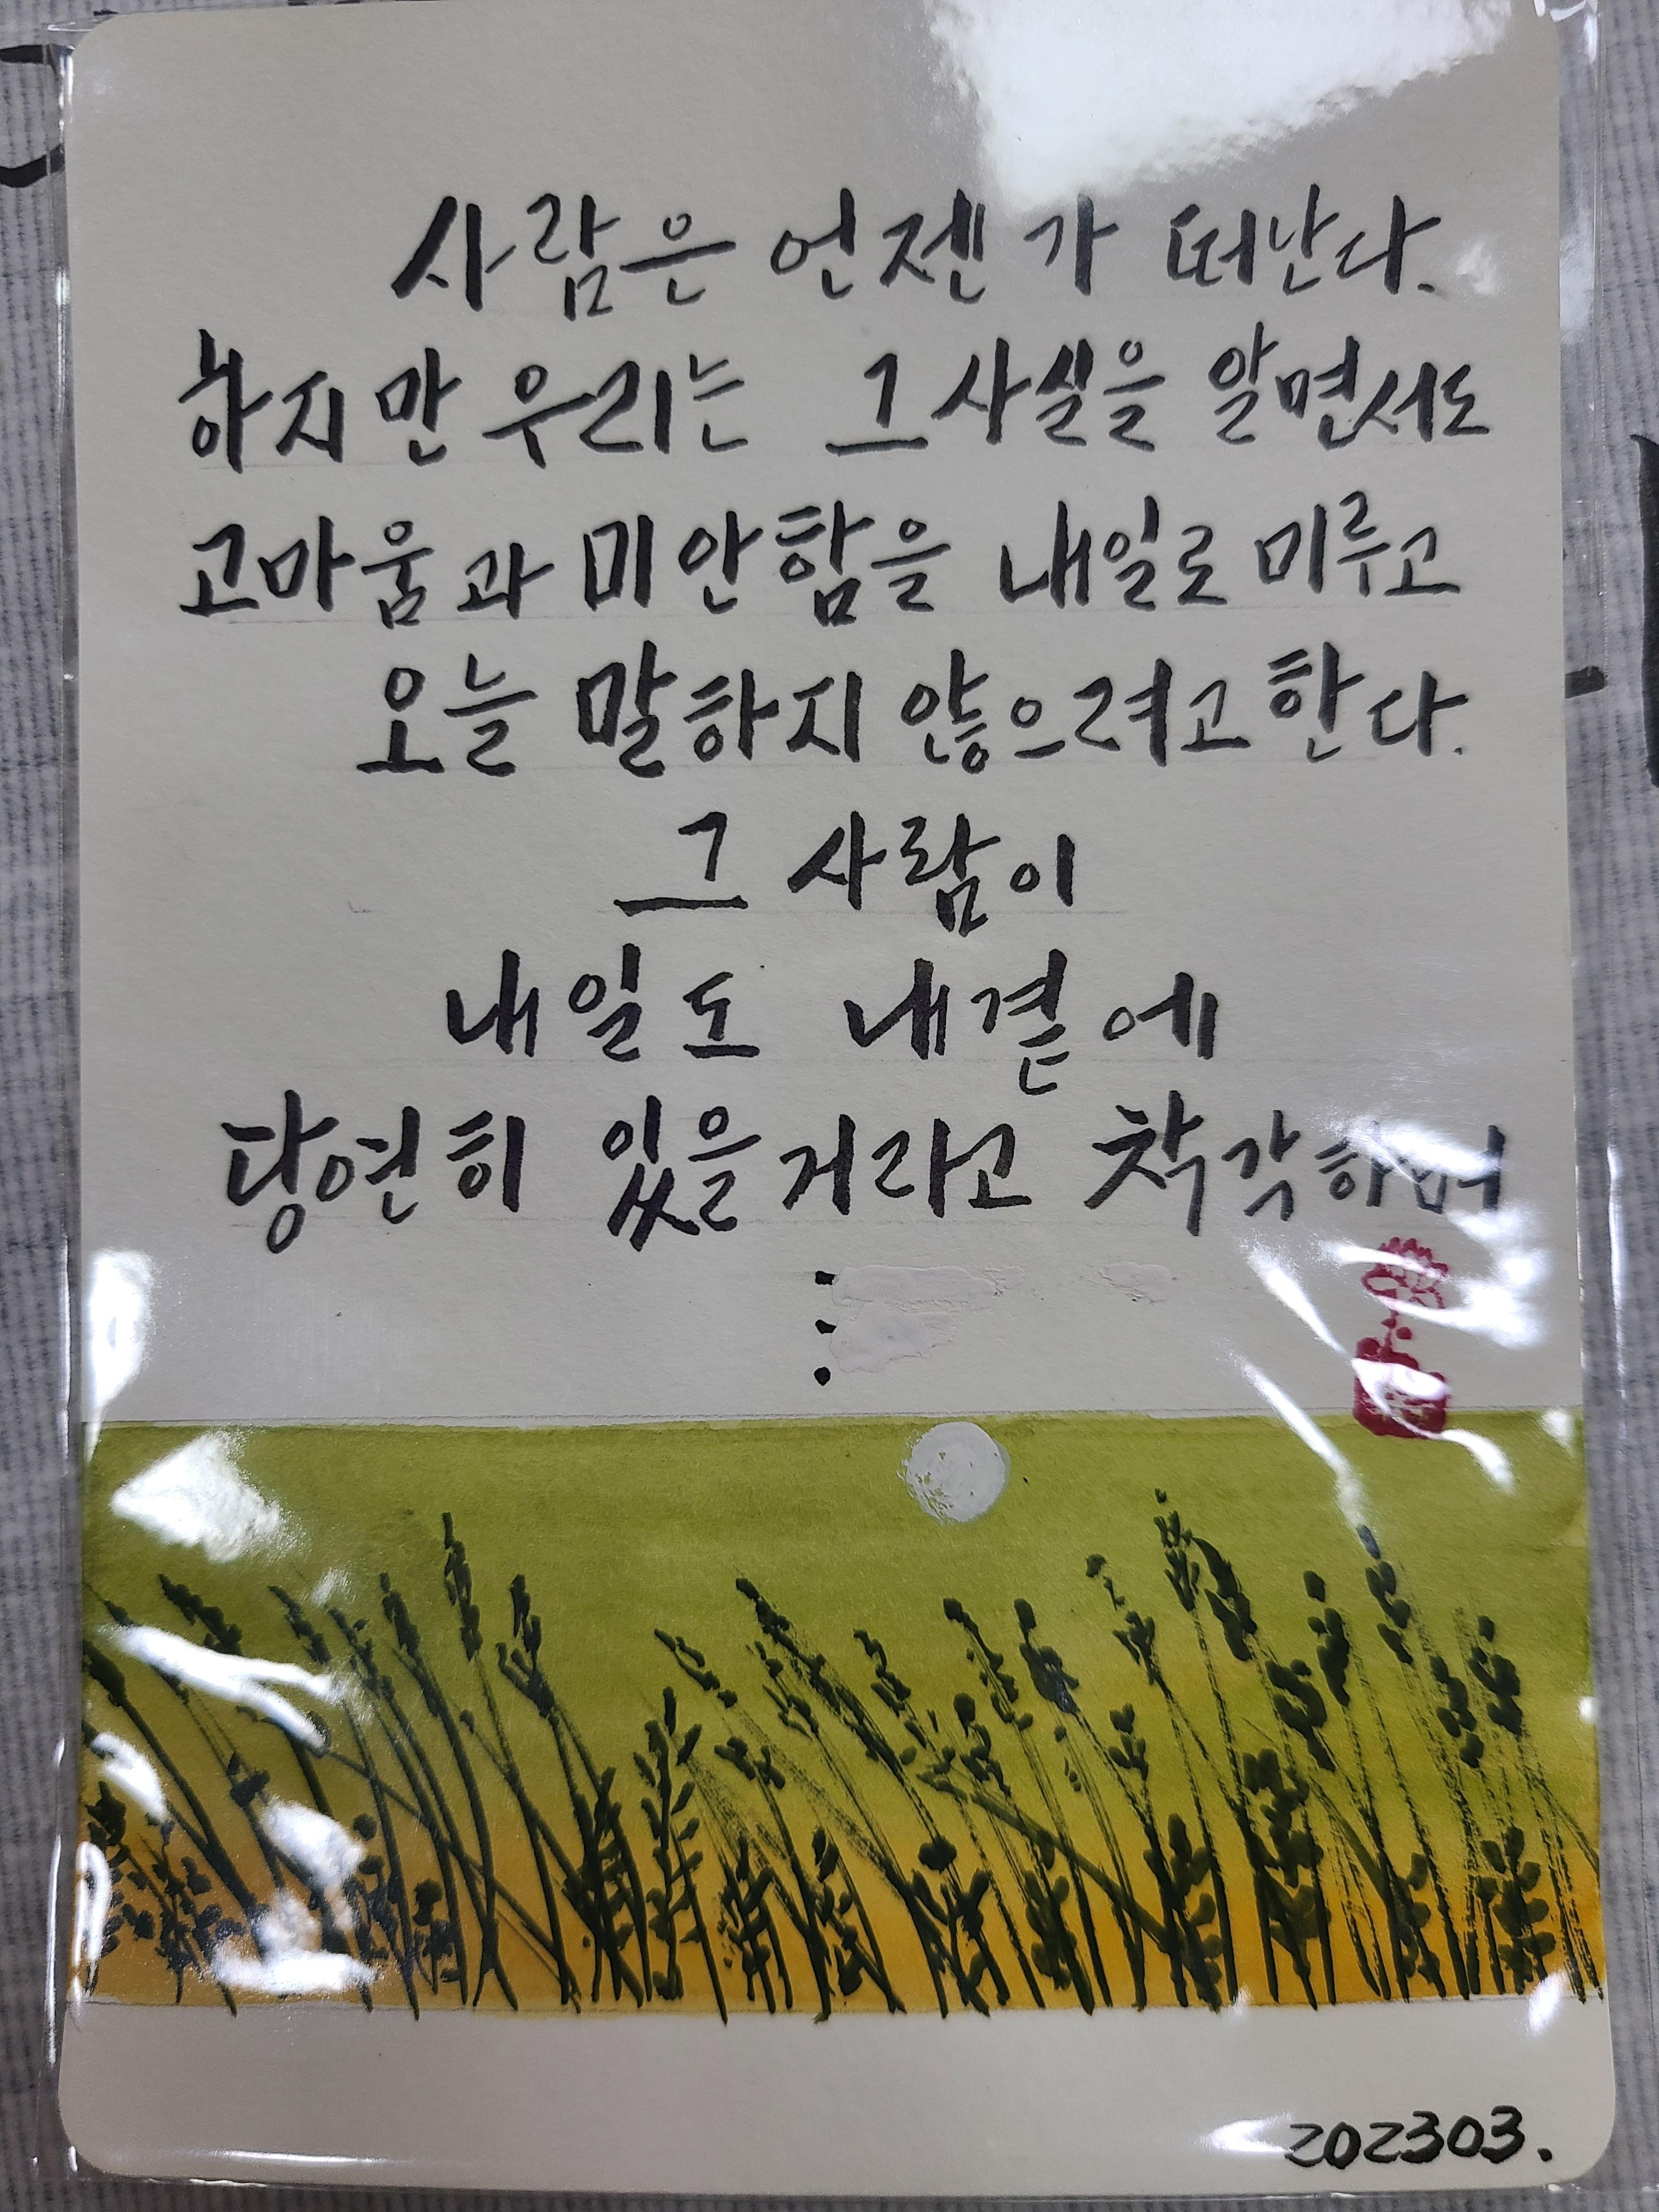 사람은 언젠가 떠난다.
하지만 우리는 그 사실을 알면서도
고마움과 미안함을 내일로 미루고
오늘 말하지 않으려고 한다.
그 사람이
내일도 내곁에
당연히 있을거라고 착각하며
⋮
202303.